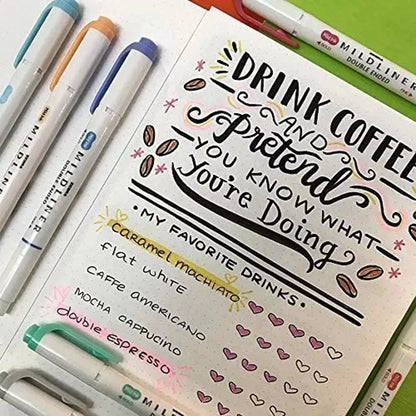 DRINK COFFEE
AND
Pretend
YOU KNOW WHAT
You're Doing
• MY FAVORITE DRINKS •
Caramel machiato
flat white
CAFFE AMERICANO
MOCHA CAPPUCINO
double ESPRESSO
MILDLINER
DOUBLE ENDED
MILDLINER
MILDLINER